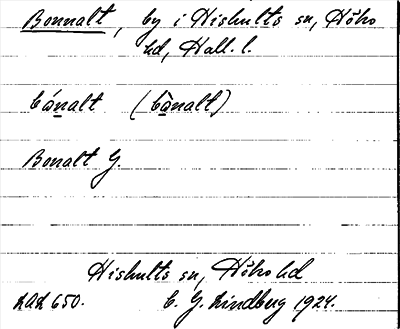 Bonnalt, by i Hishults sn, Höks
hd, Hall. l.
bánalt (bànalt)
Bonalt G.
Hishults sn, Höks hd
650. C. G. Lindberg 1924.